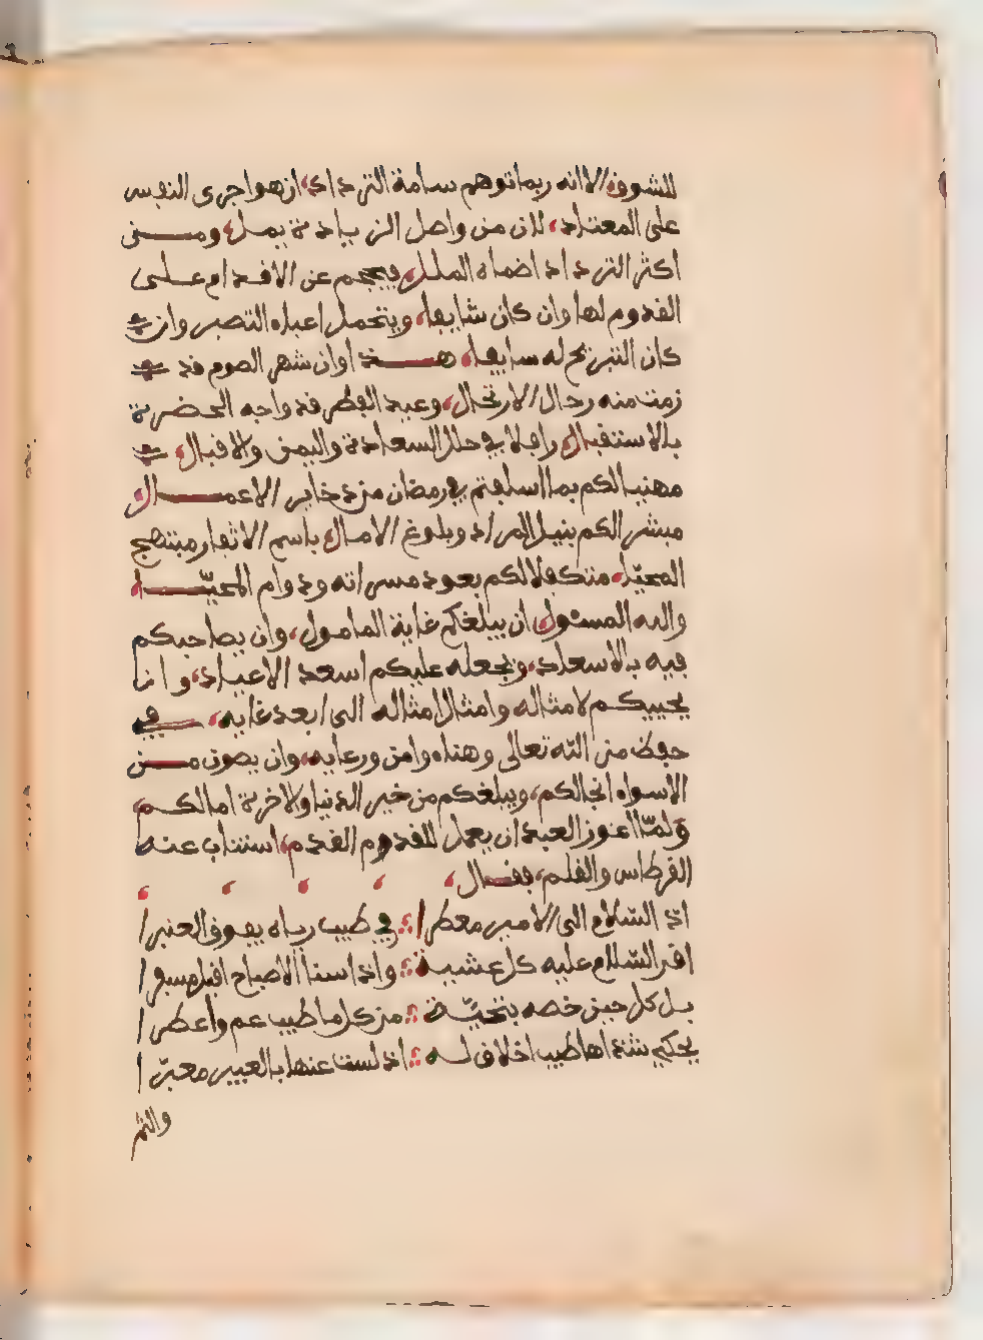 للشوق الا انه ربما توهم سامة الترداد، ان هو اجرى النفس
على المعتاد، لان من واصل الزيادة يمل، ومـــن
اكثر الترداد اضناه الملل، فيحجم عن الاقدام علـــى
القدوم لها وان كان شايقا، ويتحمل اعباء التصبر وان
كان التبريح له سايقا، هـــذا اوان شهر الصوم قد
زمت منه رحال الارتحال، وعيد الفطر قد واجه الحضرة
بالاستقبال رافلا في حلل السعادة واليمن والاقبال،
مهنيا لكم بما اسلفتم في رمضان من ذخاير الاعمـــال
مبشرا لكم بنيل المراد وبلوغ الامال، باسم الاثغار مبتهج
المحيّا، متكفلا لكم بعود مسراته ودوام المحيّـــا،
والله المسئول، ان يبلغكم غاية المامول، وان يصاحبكم
فيه بالاسعاد، ويجعله عليكم اسعد الاعياد، وان
يحييكم لامثاله وامثال امثاله الى ابعد غايه، فـــي
حفظ من الله تعالى وهناء وامن ورعايه، وان يصون مـــن
الاسواء انجالكم، ويبلغكم من خير الدنيا والاخرة امالكـــم،
ولمّا اعوز العبد ان يعمل للقدوم القدم، استناب عنه
القرطاس والقلم، فقـــال،
ادّ السّلام الى الامير معطرا ؛ في طيب رياه يفوق العنبرا
اقر السّلام عليه كل عشيـــة ؛ واذا سنا الاصباح اقبل مسفرا
بل كل حين خصه بتحيّـــة ؛ من كل ما طيب عم واعطرا
يحكي شذاها طيب اخلاق لـــه ؛ اذ لست عنها بالعبير معبّرا
والثم